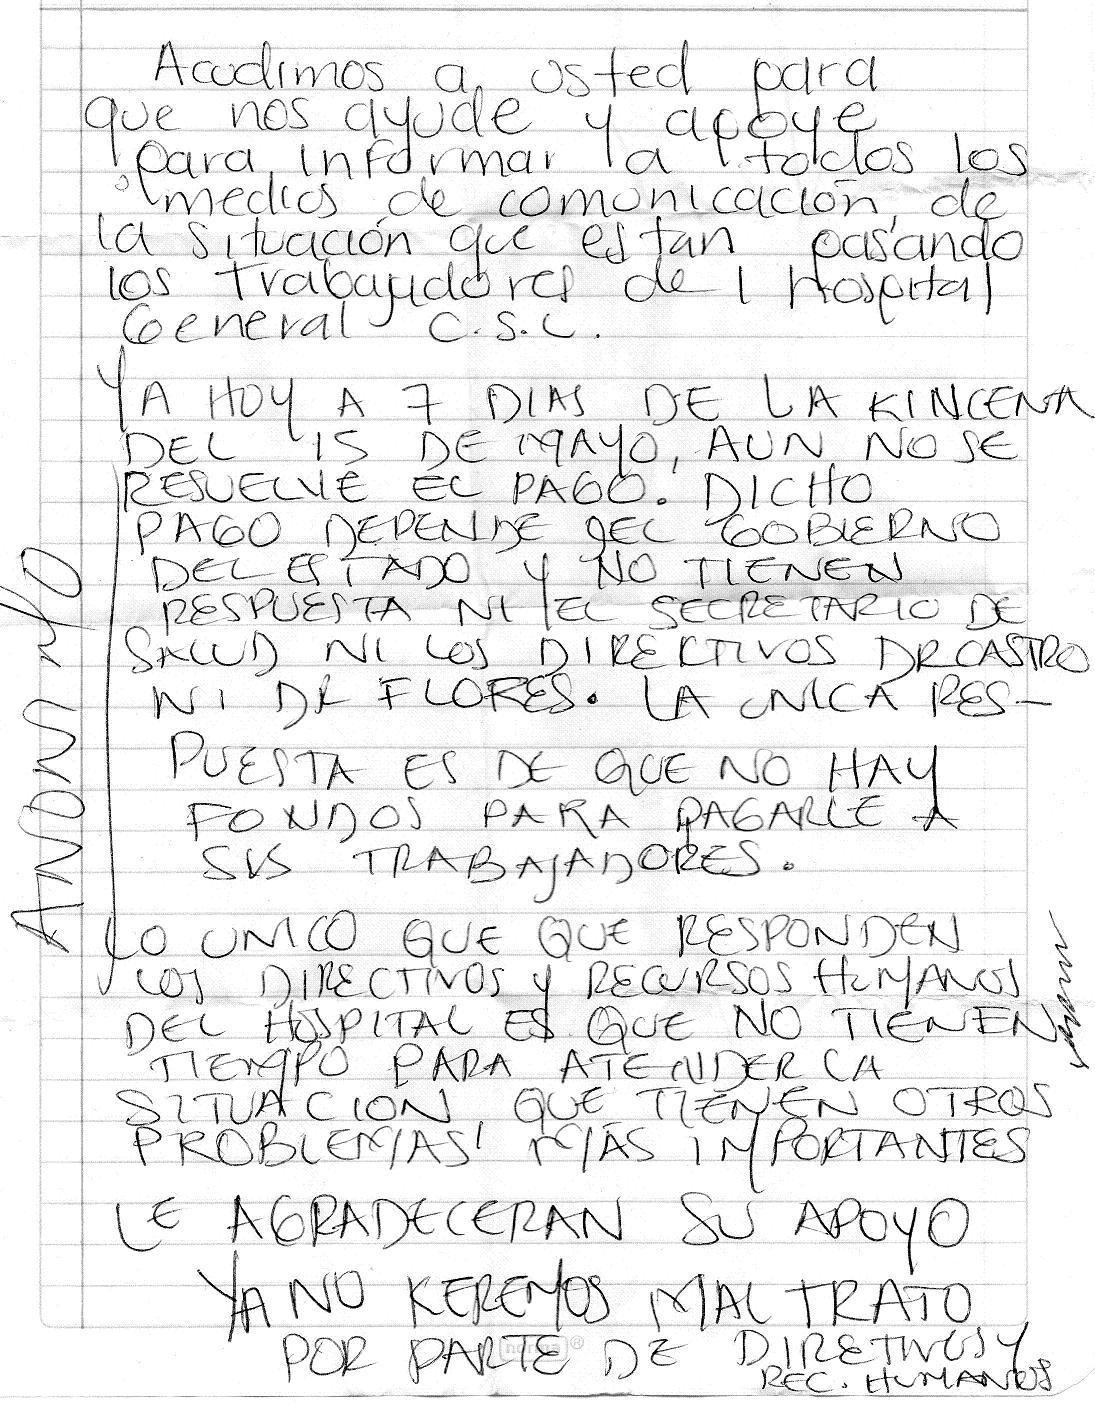 Acudimos a usted para
que nos ayude y apoye
para informar a todos los
medios de comunicación, de
la situación que estan pasando
los trabajadores del Hospital
General C.S.L.
YA HOY A 7 DIAS DE LA KINCENA
DEL 15 DE MAYO, AUN NO SE
RESUELVE EL PAGO. DICHO
PAGO DEPENDE DEL GOBIERNO
DEL ESTADO Y NO TIENEN
RESPUESTA NI EL SECRETARIO DE
SALUD NI LOS DIRECTIVOS DR CASTRO
NI DR FLORES. LA UNICA RES-
PUESTA ES DE QUE NO HAY
FONDOS PARA PAGARLE A
SUS TRABAJADORES.
LO UNICO QUE QUE RESPONDEN
LOS DIRECTIVOS Y RECURSOS HUMANOS
DEL HOSPITAL ES QUE NO TIENEN
TIEMPO PARA ATENDER LA
SITUACION QUE TIENEN OTROS
PROBLEMAS MAS IMPORTANTES
LE AGRADECERAN SU APOYO
YA NO KEREMOS MALTRATO
POR PARTE DE DIRETIVOS Y
REC. HUMANOS
ANONIMO
norma®